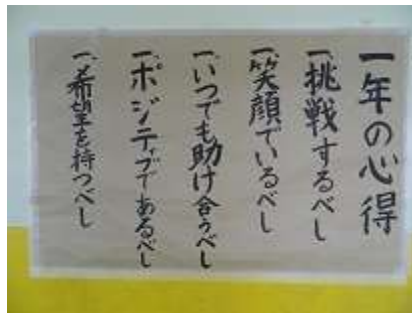 一年の心得
一、挑戦するべし
一、笑顔でいるべし
一、いつでも助け合うべし
一、ポジティブであるべし
一、希望を持つべし